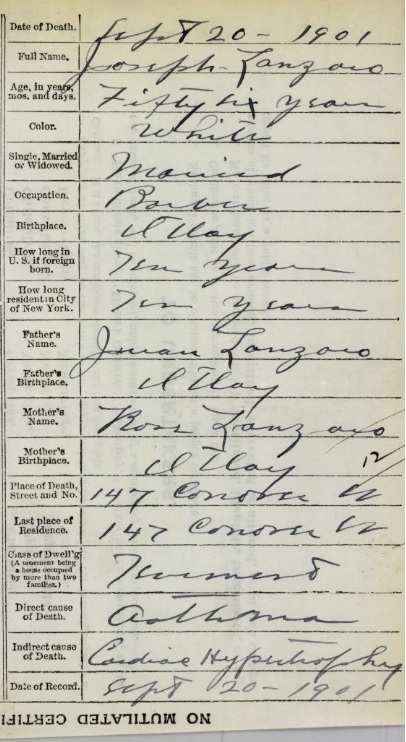 Date of Death. Sept 20 - 1901
Full Name. Joseph Lanzaro
Age, in years, mos. and days. Fifty six years
Color. White
Single, Married or Widowed. Married
Occupation. Barber
Birthplace. Italy
How long in U. S. if foreign born. Ten years
How long resident in City of New York. Ten years
Father's Name. Lanzaro
Father's Birthplace. Italy
Mother's Name. Rose Lanzaro
Mother's Birthplace. Italy 12
Place of Death, Street and No. 147 Conover St
Last place of Residence. 147 Conover St
Class of Dwell'g (A tenement being a house occupied by more than two families.) Tenement
Direct cause of Death. Asthma
Indirect cause of Death. Cardiac Hypertrophy
Date of Record. Sept 20 - 1901
NO MUTILATED CERTIFI